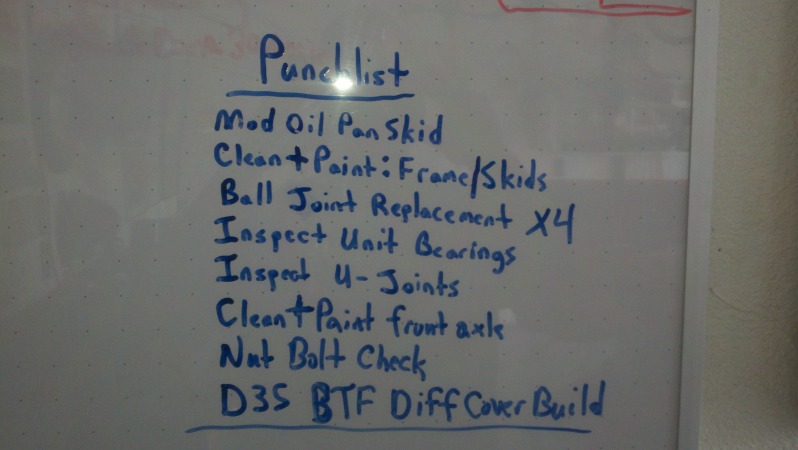 Punchlist
Mod Oil Pan Skid
Clean + Paint: Frame/Skids
Ball Joint Replacement X4
Inspect Unit Bearings
Inspect U-Joints
Clean + Paint front axle
Nut Bolt Check
D35 BTF Diff Cover Build